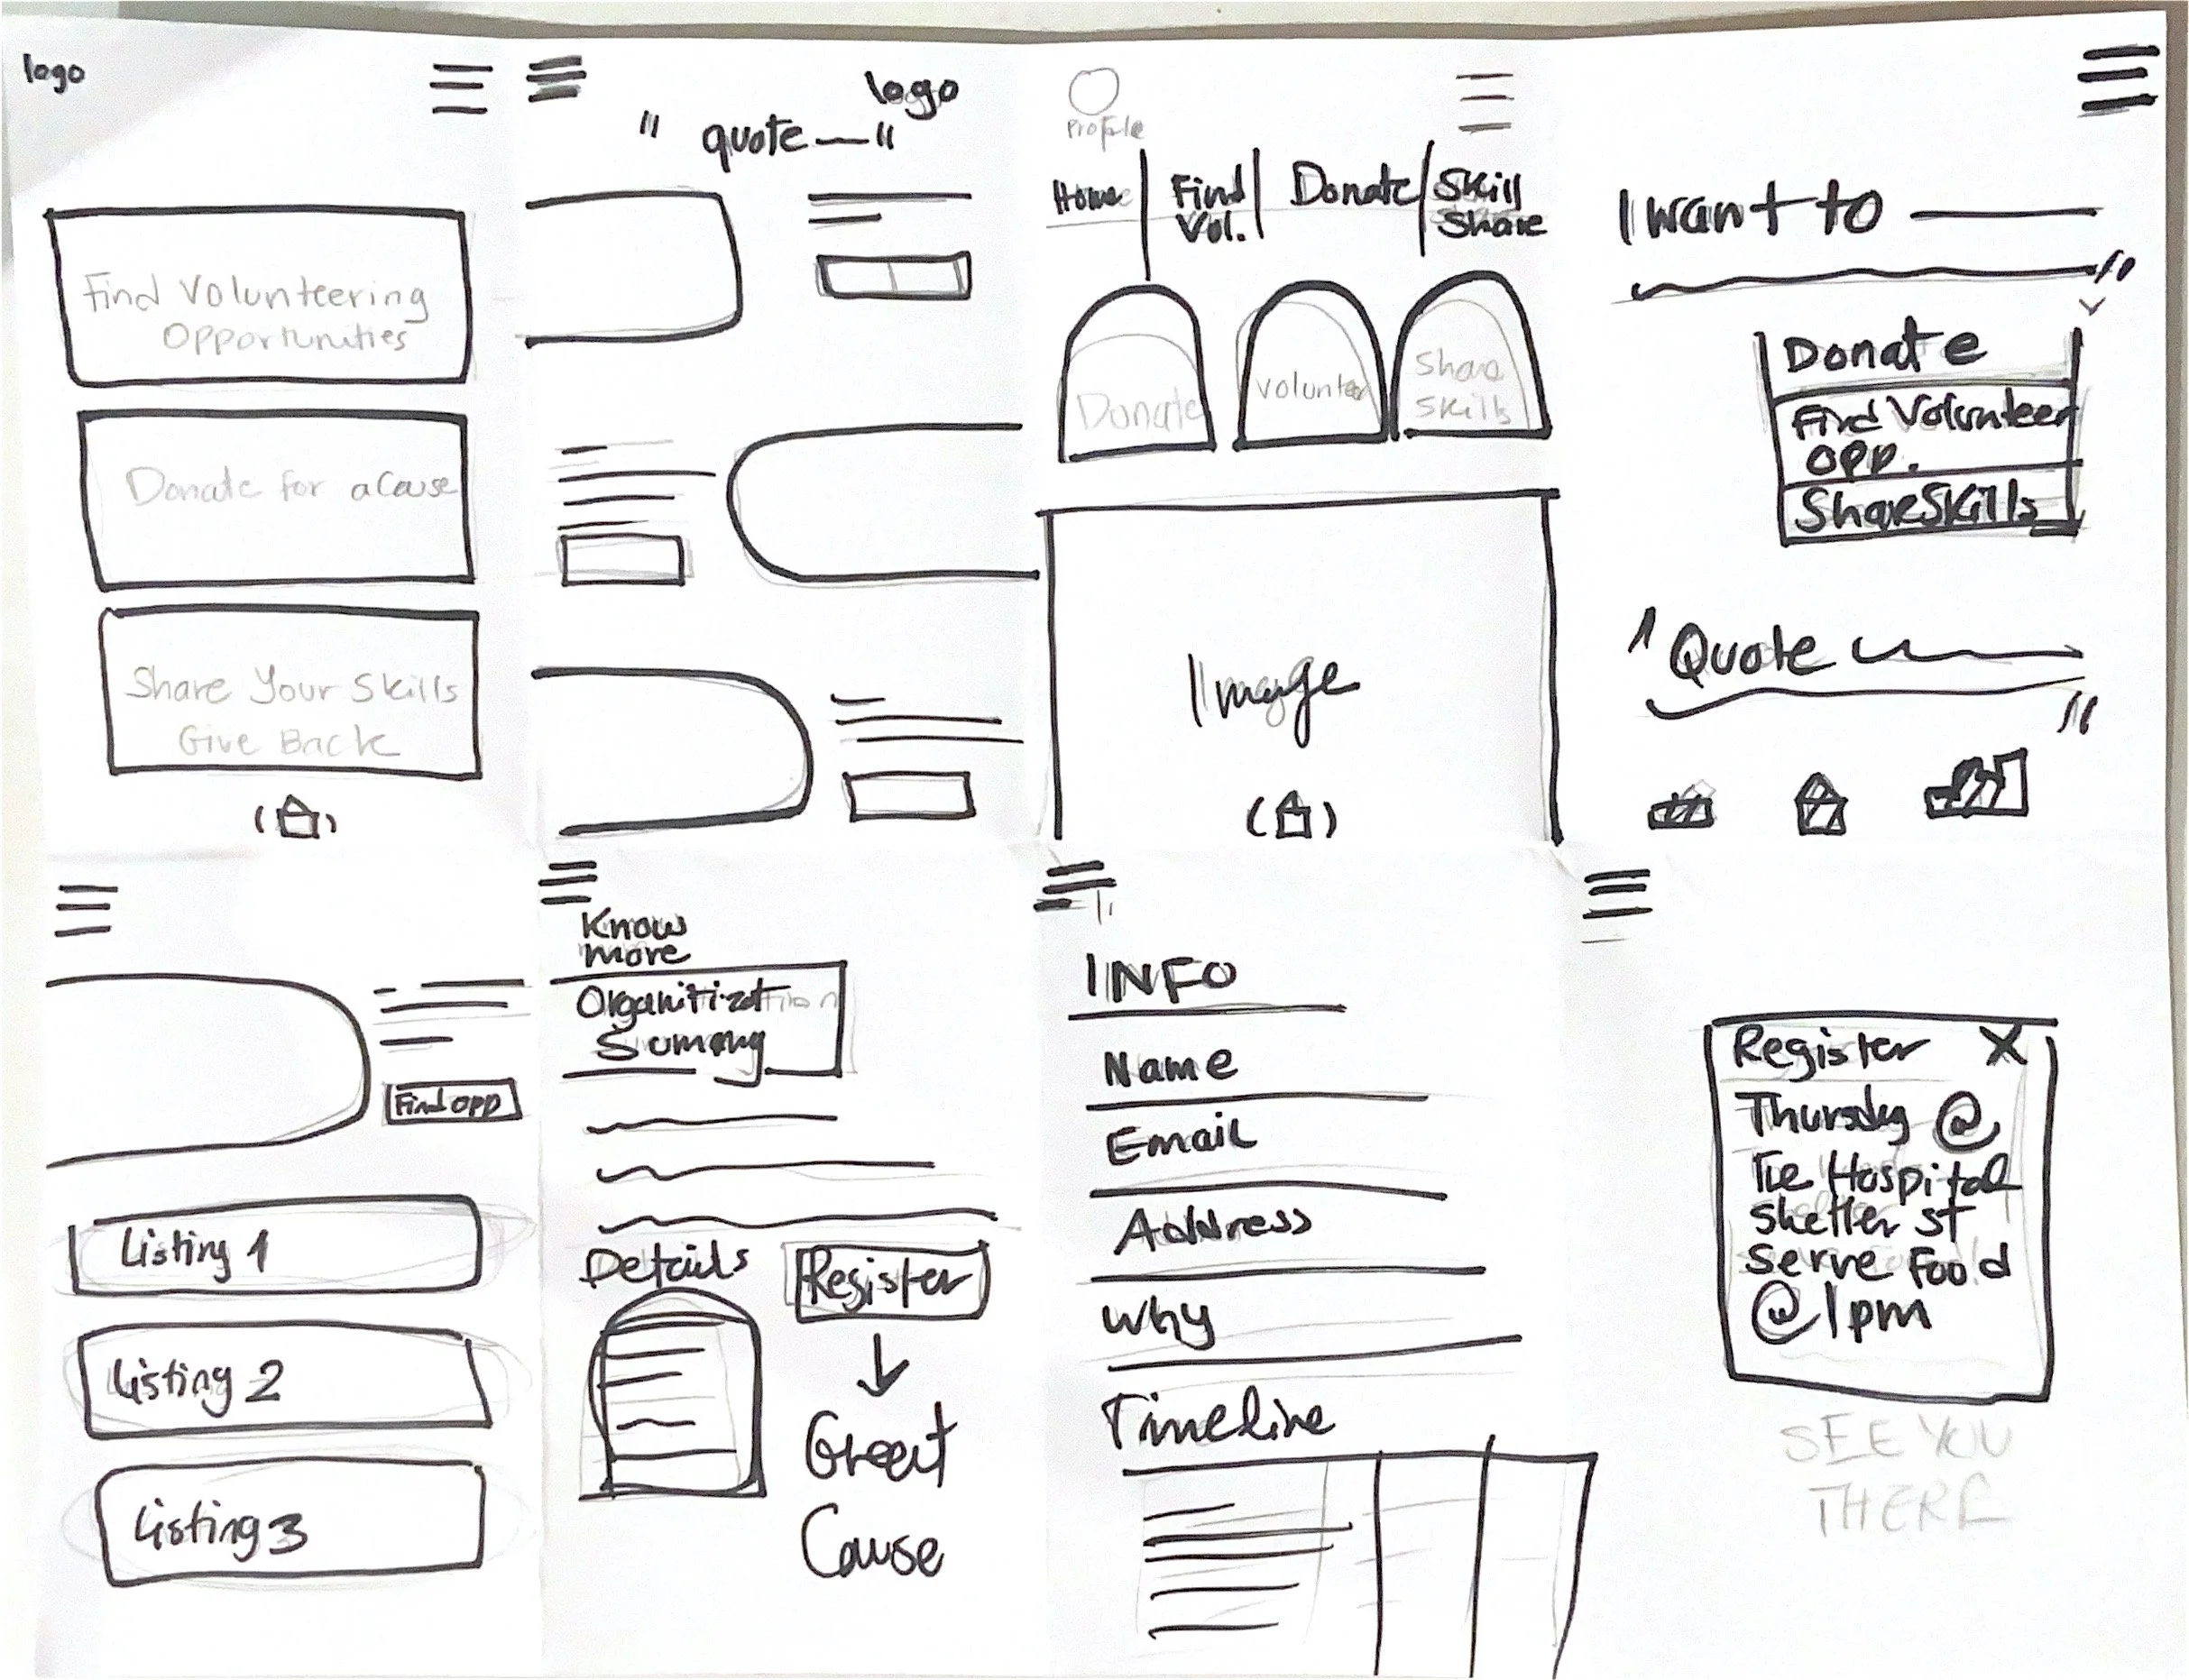 logo
Find Volunteering
Opportunities
Donate for a Cause
Share Your Skills
Give Back
logo
" quote "
Profile
Home
Find
Vol.
Donate
Skill
Share
Donate
Volunteer
Share
Skills
Image
I want to
"
Donate
Find Volunteer
opp.
Share Skills
" Quote
"
Find opp
Listing 1
Listing 2
Listing 3
Know
more
Organitization
Summary
Details
Register
Great
Cause
INFO
Name
Email
Address
Why
Timeline
Register X
Thursday @
The Hospital
Shelter St
Serve Food
@ 1pm
SEE YOU
THERE